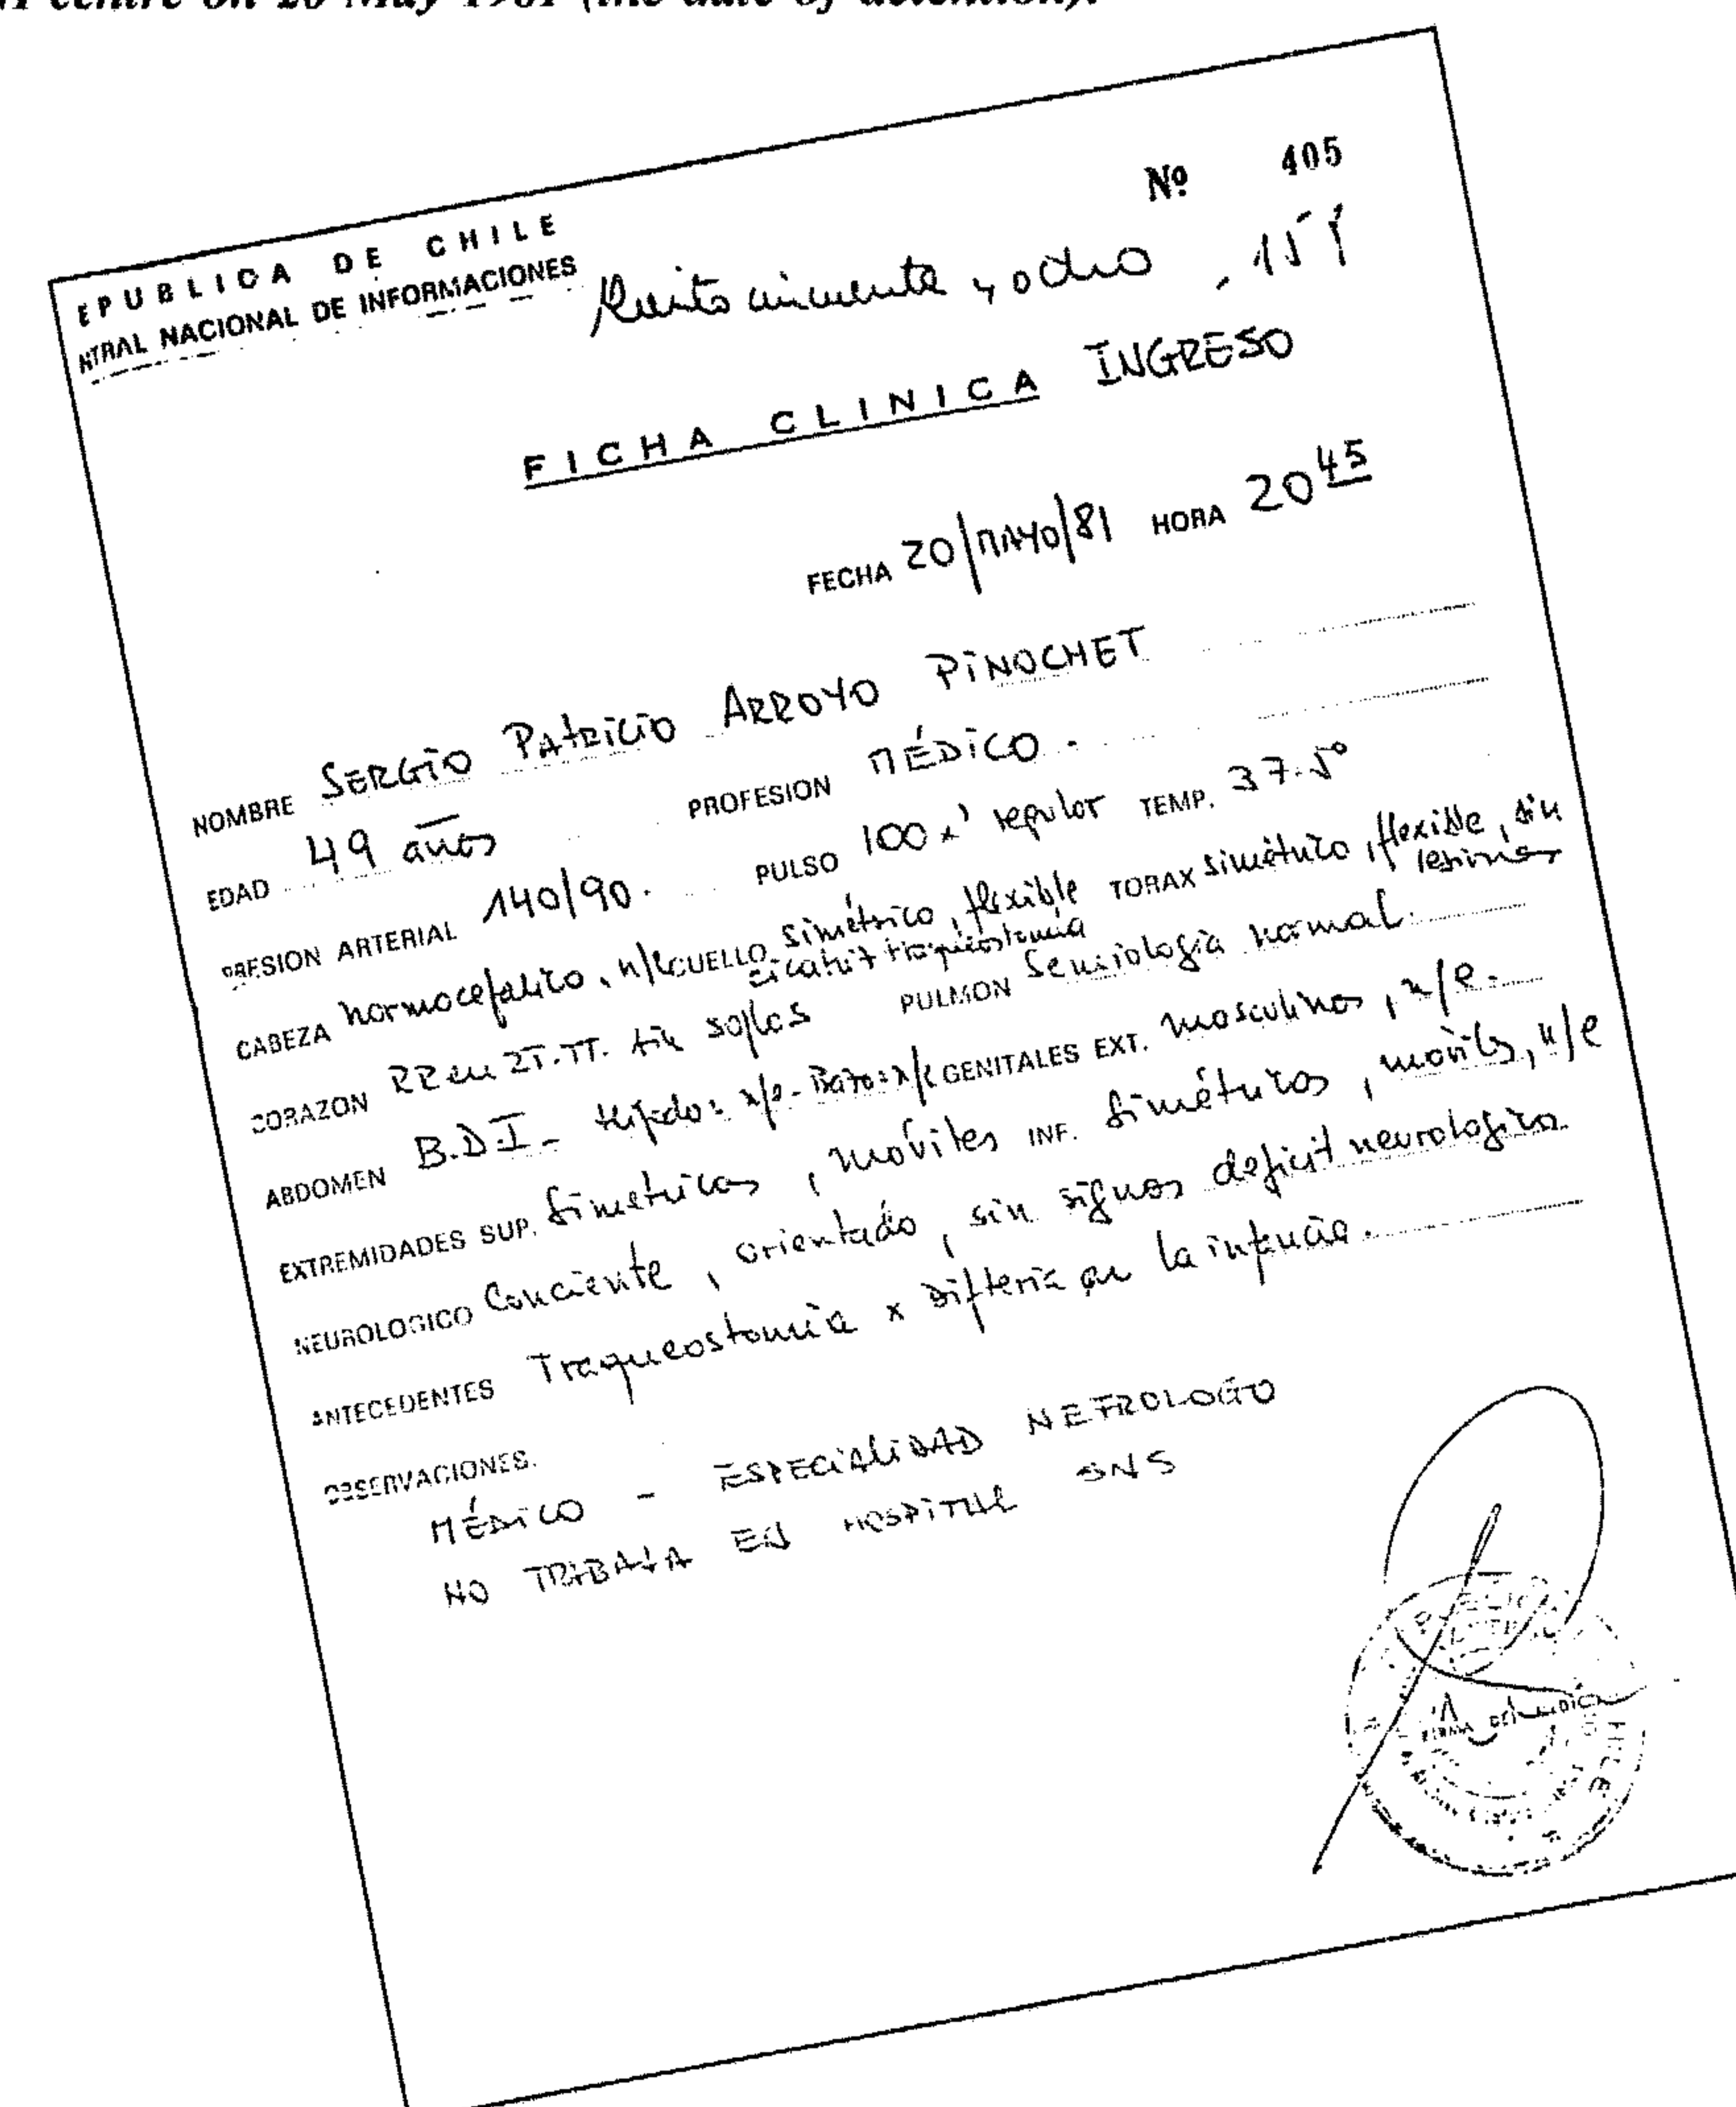 centre on 20 May 1981 (the date of detention).
Nº 405
EPUBLICA DE CHILE
NTRAL NACIONAL DE INFORMACIONES
cincuenta y ocho
FICHA CLINICA INGRESO
FECHA 20/MAYO/81 HORA 20 45
NOMBRE SERGIO PATRICIO ARROYO PINOCHET
EDAD 49 años PROFESION MÉDICO.
PRESION ARTERIAL 140/90. PULSO 100 x' regular TEMP. 37.5°
CABEZA normocefalico, n/e CUELLO simétrico, flexible TORAX simétrico, flexible, sin
cicatriz traqueostomía lesiones
CORAZON RR en 2T.TT. sin soplos PULMON Semiología normal.
ABDOMEN B.D.I - Hígado: n/e - Bazo: n/e GENITALES EXT. masculinos, n/e.
EXTREMIDADES SUP. Simetricas, móviles INF. Simétricos, moviles, n/e
NEUROLOGICO Conciente, orientado, sin signos deficit neurologico.
ANTECEDENTES Traqueostomía x Difteria en la infancia.
OBSERVACIONES.
MÉDICO - ESPECIALIDAD NEFROLOGO
NO TRABAJA EN HOSPITAL SNS
FIRMA DEL MEDICO